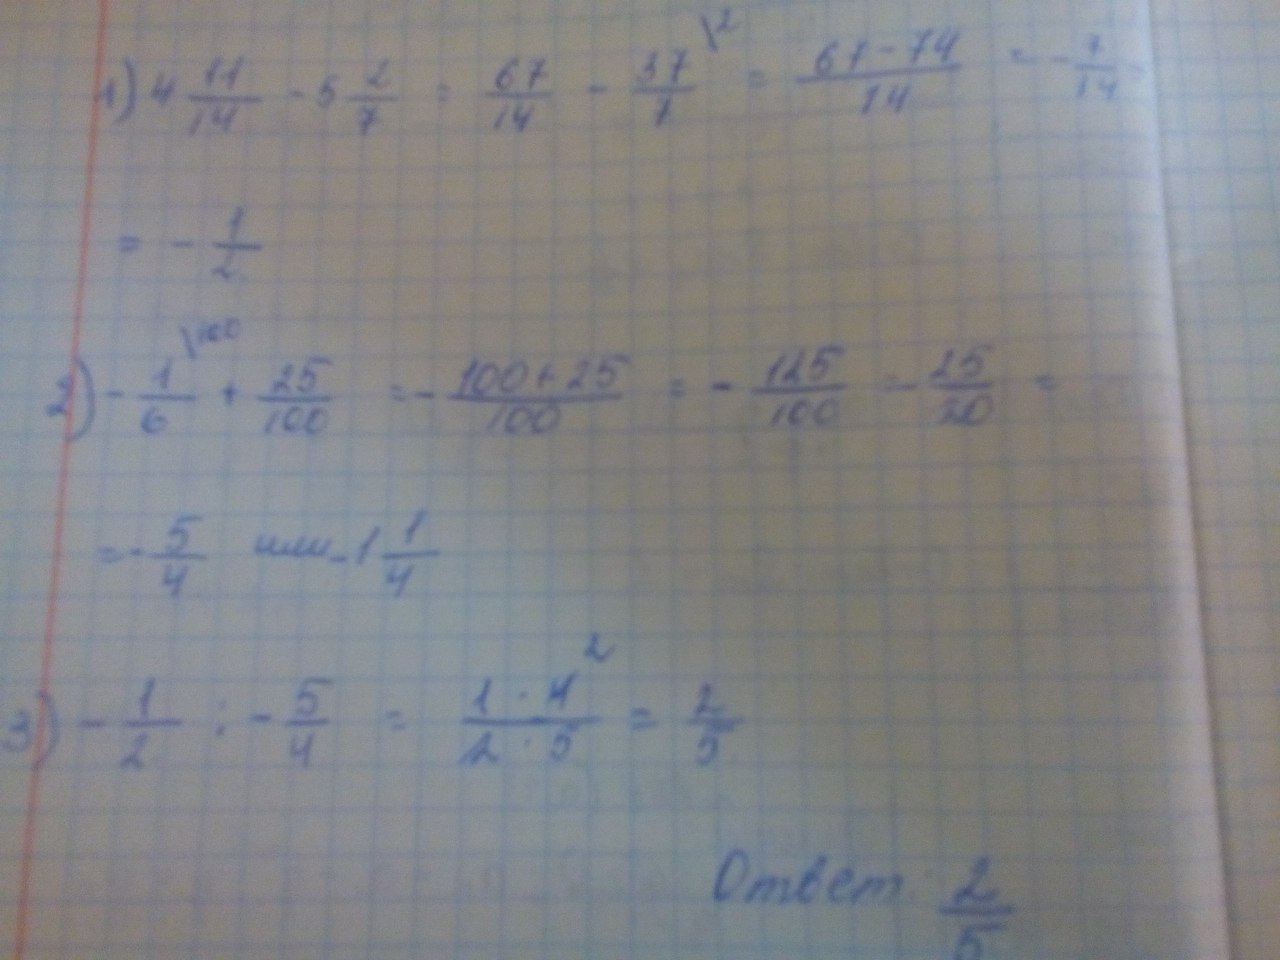 1) 4 11/14 - 5 2/7 = 67/14 - 37/7 \2 = 67-74/14 = - 7/14 =
= - 1/2
2) - 1/6 \100 + 25/100 = - 100+25/100 = - 125/100 = - 25/20 =
= - 5/4 или - 1 1/4
3) - 1/2 : - 5/4 = 1 · 4 2/2 · 5 = 2/5
Ответ: 2/5